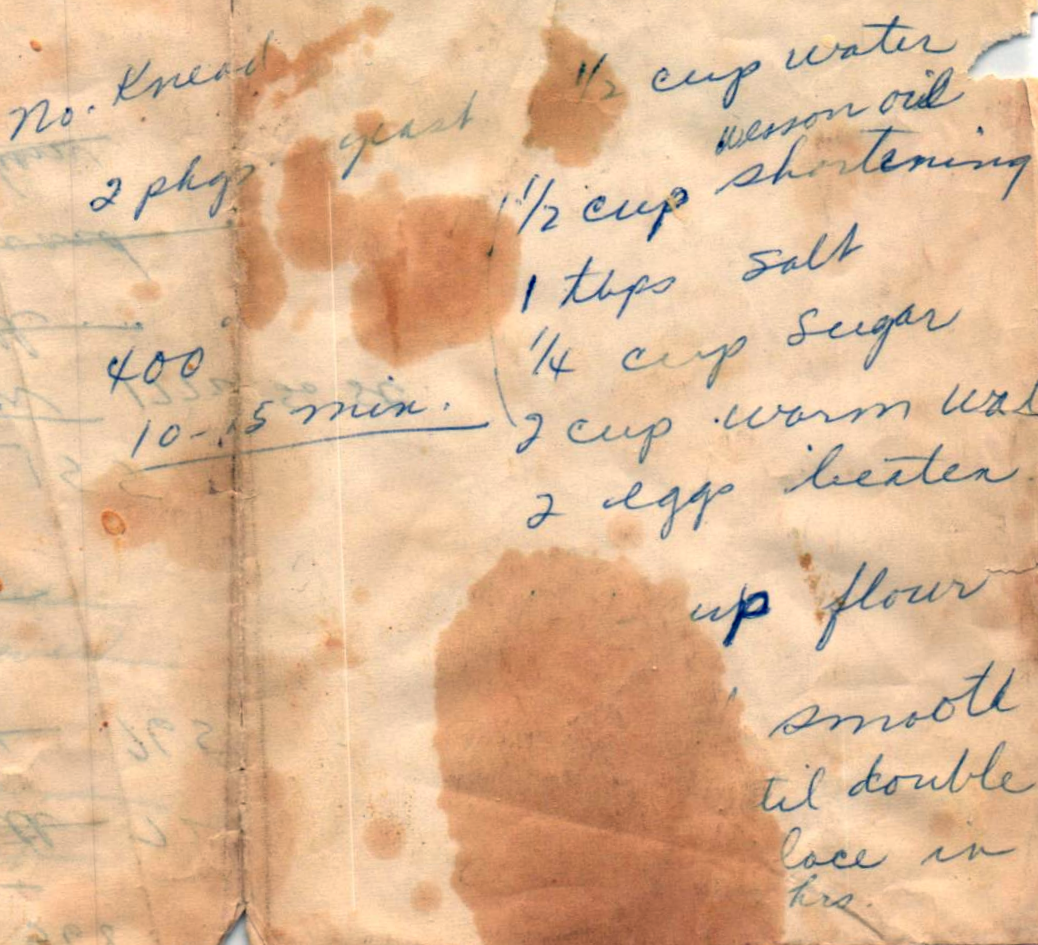 No. Knead
2 pkgs. yeast
1/2 cup water
wesson oil
1 1/2 cup shortening
1 tbps salt
1/4 cup sugar
2 cup warm wat
2 eggs beaten
400
10-15 min.
up flour
smooth
til double
lace in
hrs.